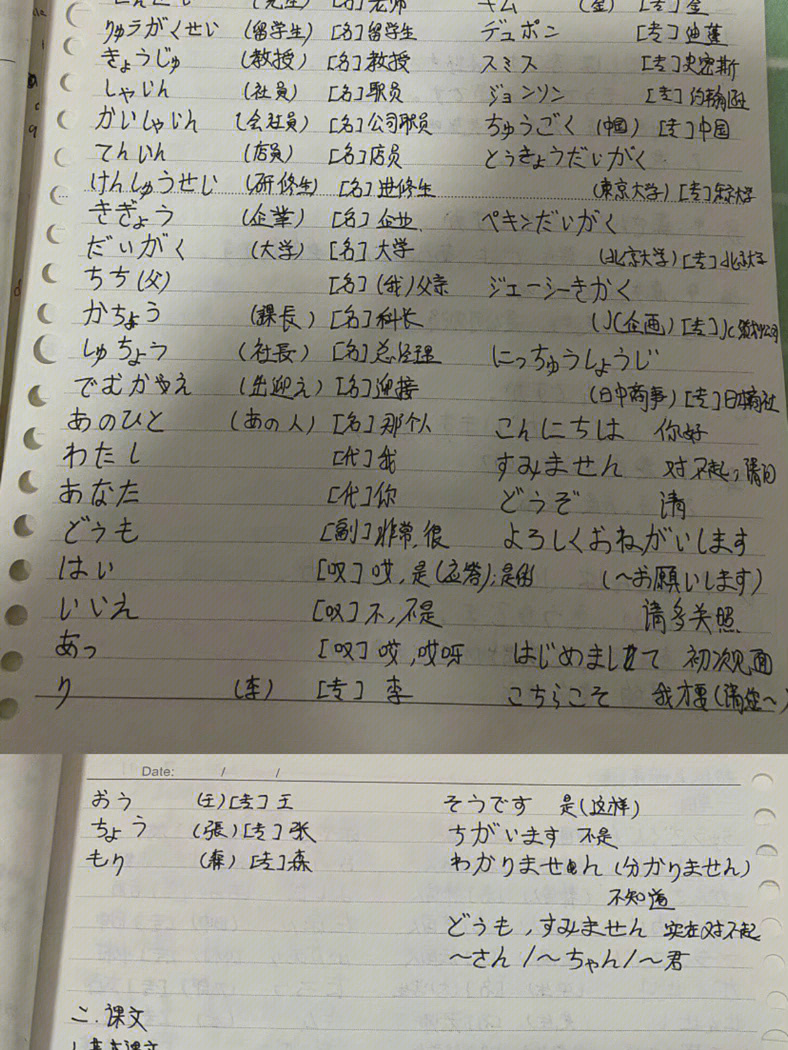 りゅうがくせい (留学生) [名]留学生
きょうじゅ (教授) [名]教授
しゃいん (社員) [名]职员
かいしゃいん (会社員) [名]公司职员
てんいん (店員) [名]店员
けんしゅうせい (研修生) [名]进修生
きぎょう (企業) [名]企业
だいがく (大学) [名]大学
ちち(父) [名](我)父亲
かちょう (課長) [名]科长
しゅちょう (社長) [名]总经理
でむかえ (出迎え) [名]迎接
あのひと (あの人) [名]那个人
わたし [代]我
あなた [代]你
どうも [副]非常,很
はい [叹]哎,是(应答);是的
いいえ [叹]不,不是
あっ [叹]哎,哎呀
り (李) [专]李
キム (金) [专]金
デュポン [专]迪蓬
スミス [专]史密斯
ジョンソン [专]约翰逊
ちゅうごく (中国) [专]中国
とうきょうだいがく
(東京大学) [专]东京大学
ペキンだいがく
(北京大学) [专]北京大学
ジェーシーきかく
(JC企画) [专]JC策划公司
にっちゅうしょうじ
(日中商事) [专]日中商社
こんにちは 你好
すみません 对不起,请问
どうぞ 请
よろしくおねがいします
(~お願いします)
请多关照
はじめまして 初次见面
こちらこそ 我才要(请您~)
Date: / /
おう (王)[专]王
ちょう (張)[专]张
もり (森) [专]森
そうです 是(这样)
ちがいます 不是
わかりません (分かりません)
不知道
どうも,すみません 实在对不起
~さん/~ちゃん/~君
二.课文
1.基本课文